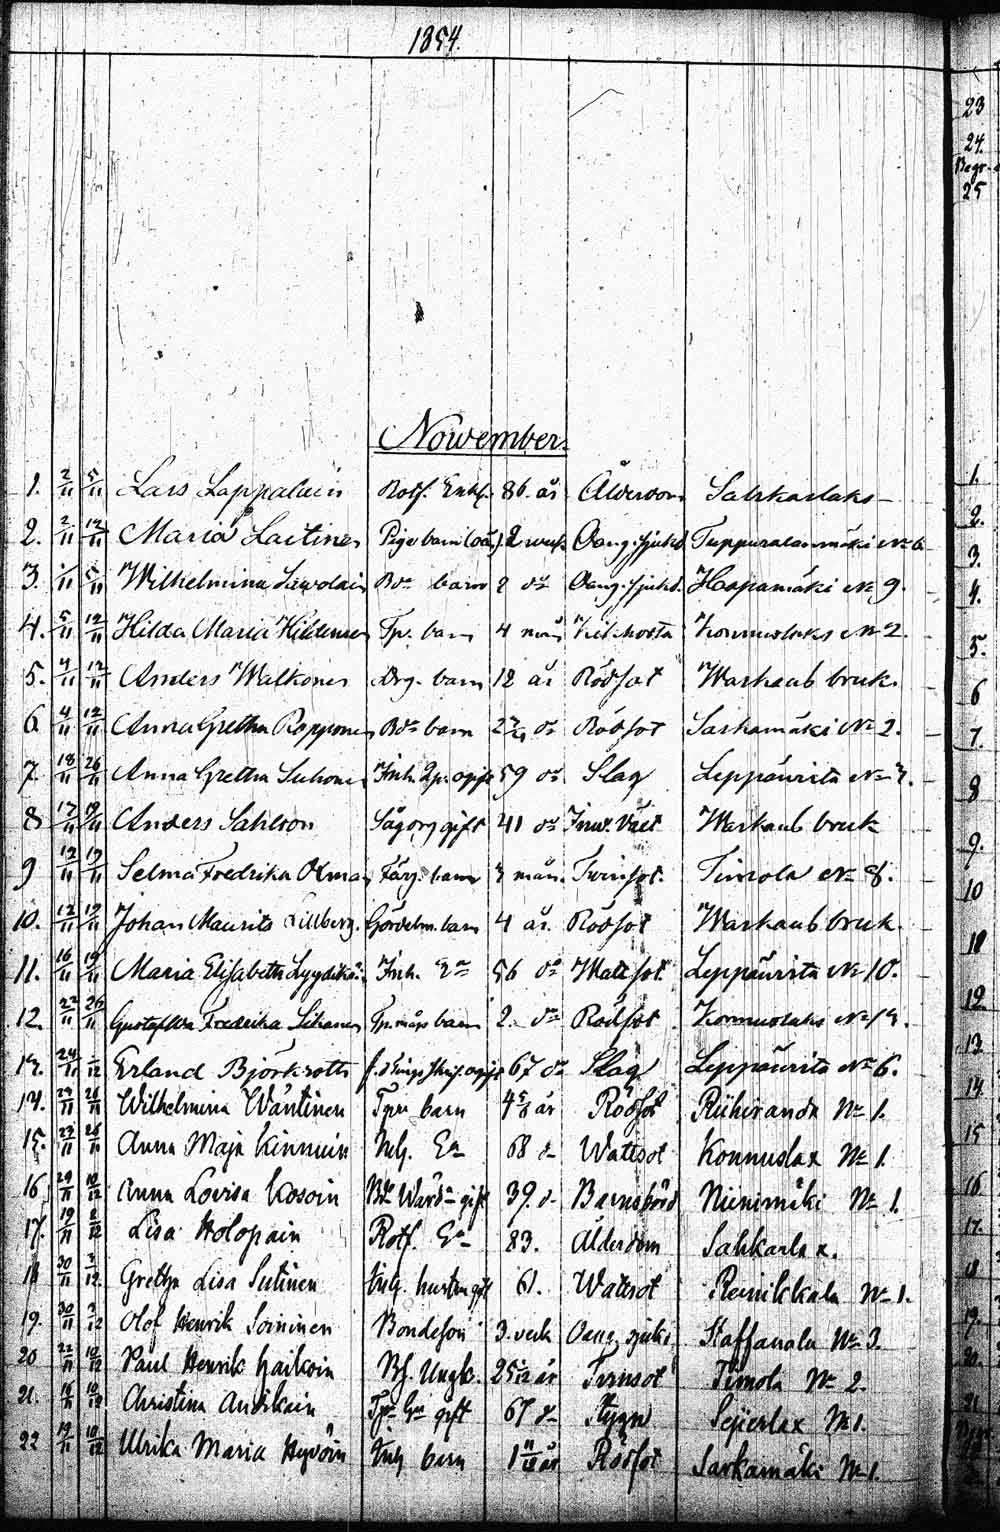 1854.
23
24.
Begr.
25
Nowember.
1. 2/11 5/11 Lars Lappalain Rotf. Enkl. 86. år Ålderdom Sahkarlaks
2. 2/11 12/11 Maria Laitinen Pige barn 2 veck Oang. sjukd Tuppuralanmäki No 6
3. 1/11 5/11 Wilhelmina Sawolain Bde barn 2 do Oang. sjukd. Haapamäki No 9.
4. 5/11 12/11 Hilda Maria Hildenen Tp. barn 4 mån Kikhosta Konnuslaks No 2.
5. 4/11 12/11 Anders Walkonen Drg. barn 12 år Rödsot Warkaus bruk.
6. 4/11 12/11 Anna Gretha Ropponen Bde barn do Rödsot Sarkamäki No 2.
7. 18/11 26/11 Anna Gretha Suhonen Inh. ogift 59 do Slag Leppävirta No 7.
8 17/11 19/11 Anders Sahlson Sågarg gift 41 do Inw. Väct Warkaus bruk
9 12/11 19/11 Selma Fredrika Färg. barn 7 mån. Twinsot. Timola No 8.
10. 12/11 19/11 Johan Maurits Lillberg. Gördelm. barn 4 år. Rödsot Warkaus bruk.
11. 16/11 19/11 Maria Elisabeth Lyydikäi. Inh. Ea 56 do Wattsot Leppävirta No 10.
12. 22/11 26/11 Gustafwa Fredrika Sihvonen barn 2. do Rödsot Konnuslaks No 17.
13. 24/11 /12 Erland Björkroth 67 do Slag Leppävirta No 6.
14. 24/11 26/11 Wilhelmina Wäntinen Tpr barn 4 5/6 år Rödsot Riihiranda No 1.
15. 23/11 26/11 Anna Maja Kinnuin Inh. Ea 68 d Wattsot Konnuslax No 1.
16 29/11 10/12 Anna Lovisa Kosoin gift 39. d Barnsbörd Nienimäki No 1.
17. 19/11 2/12 Lisa Holopain Rotf. Ea 83. Ålderdom Sahkarlax.
18 30/11 3/12 Gretha Lisa Sutinen Inh. hustru gift 61. Wattsot Reinikkala No 1.
19. 30/11 3/12 Olof Henrik Soininen Bondeson 3. veck Oang. sjukd. Staffanala No 3.
20 22/11 10/12 Paul Henrik Haikoin Bf. Ungk. 25 år Tvinsot Timola No 2.
21. 16/11 10/12 Christina Andikain Tpr Ea gift 67 d Stygn Seijerlax No 1.
22 19/11 10/12 Ulrika Maria Hyvöin Inh barn 1 år Rödsot Sarkamäki No 1.
1.
2.
3.
4.
5.
6
7.
8
9.
10
12
13
14.
15
16
17.
19.
20.
21